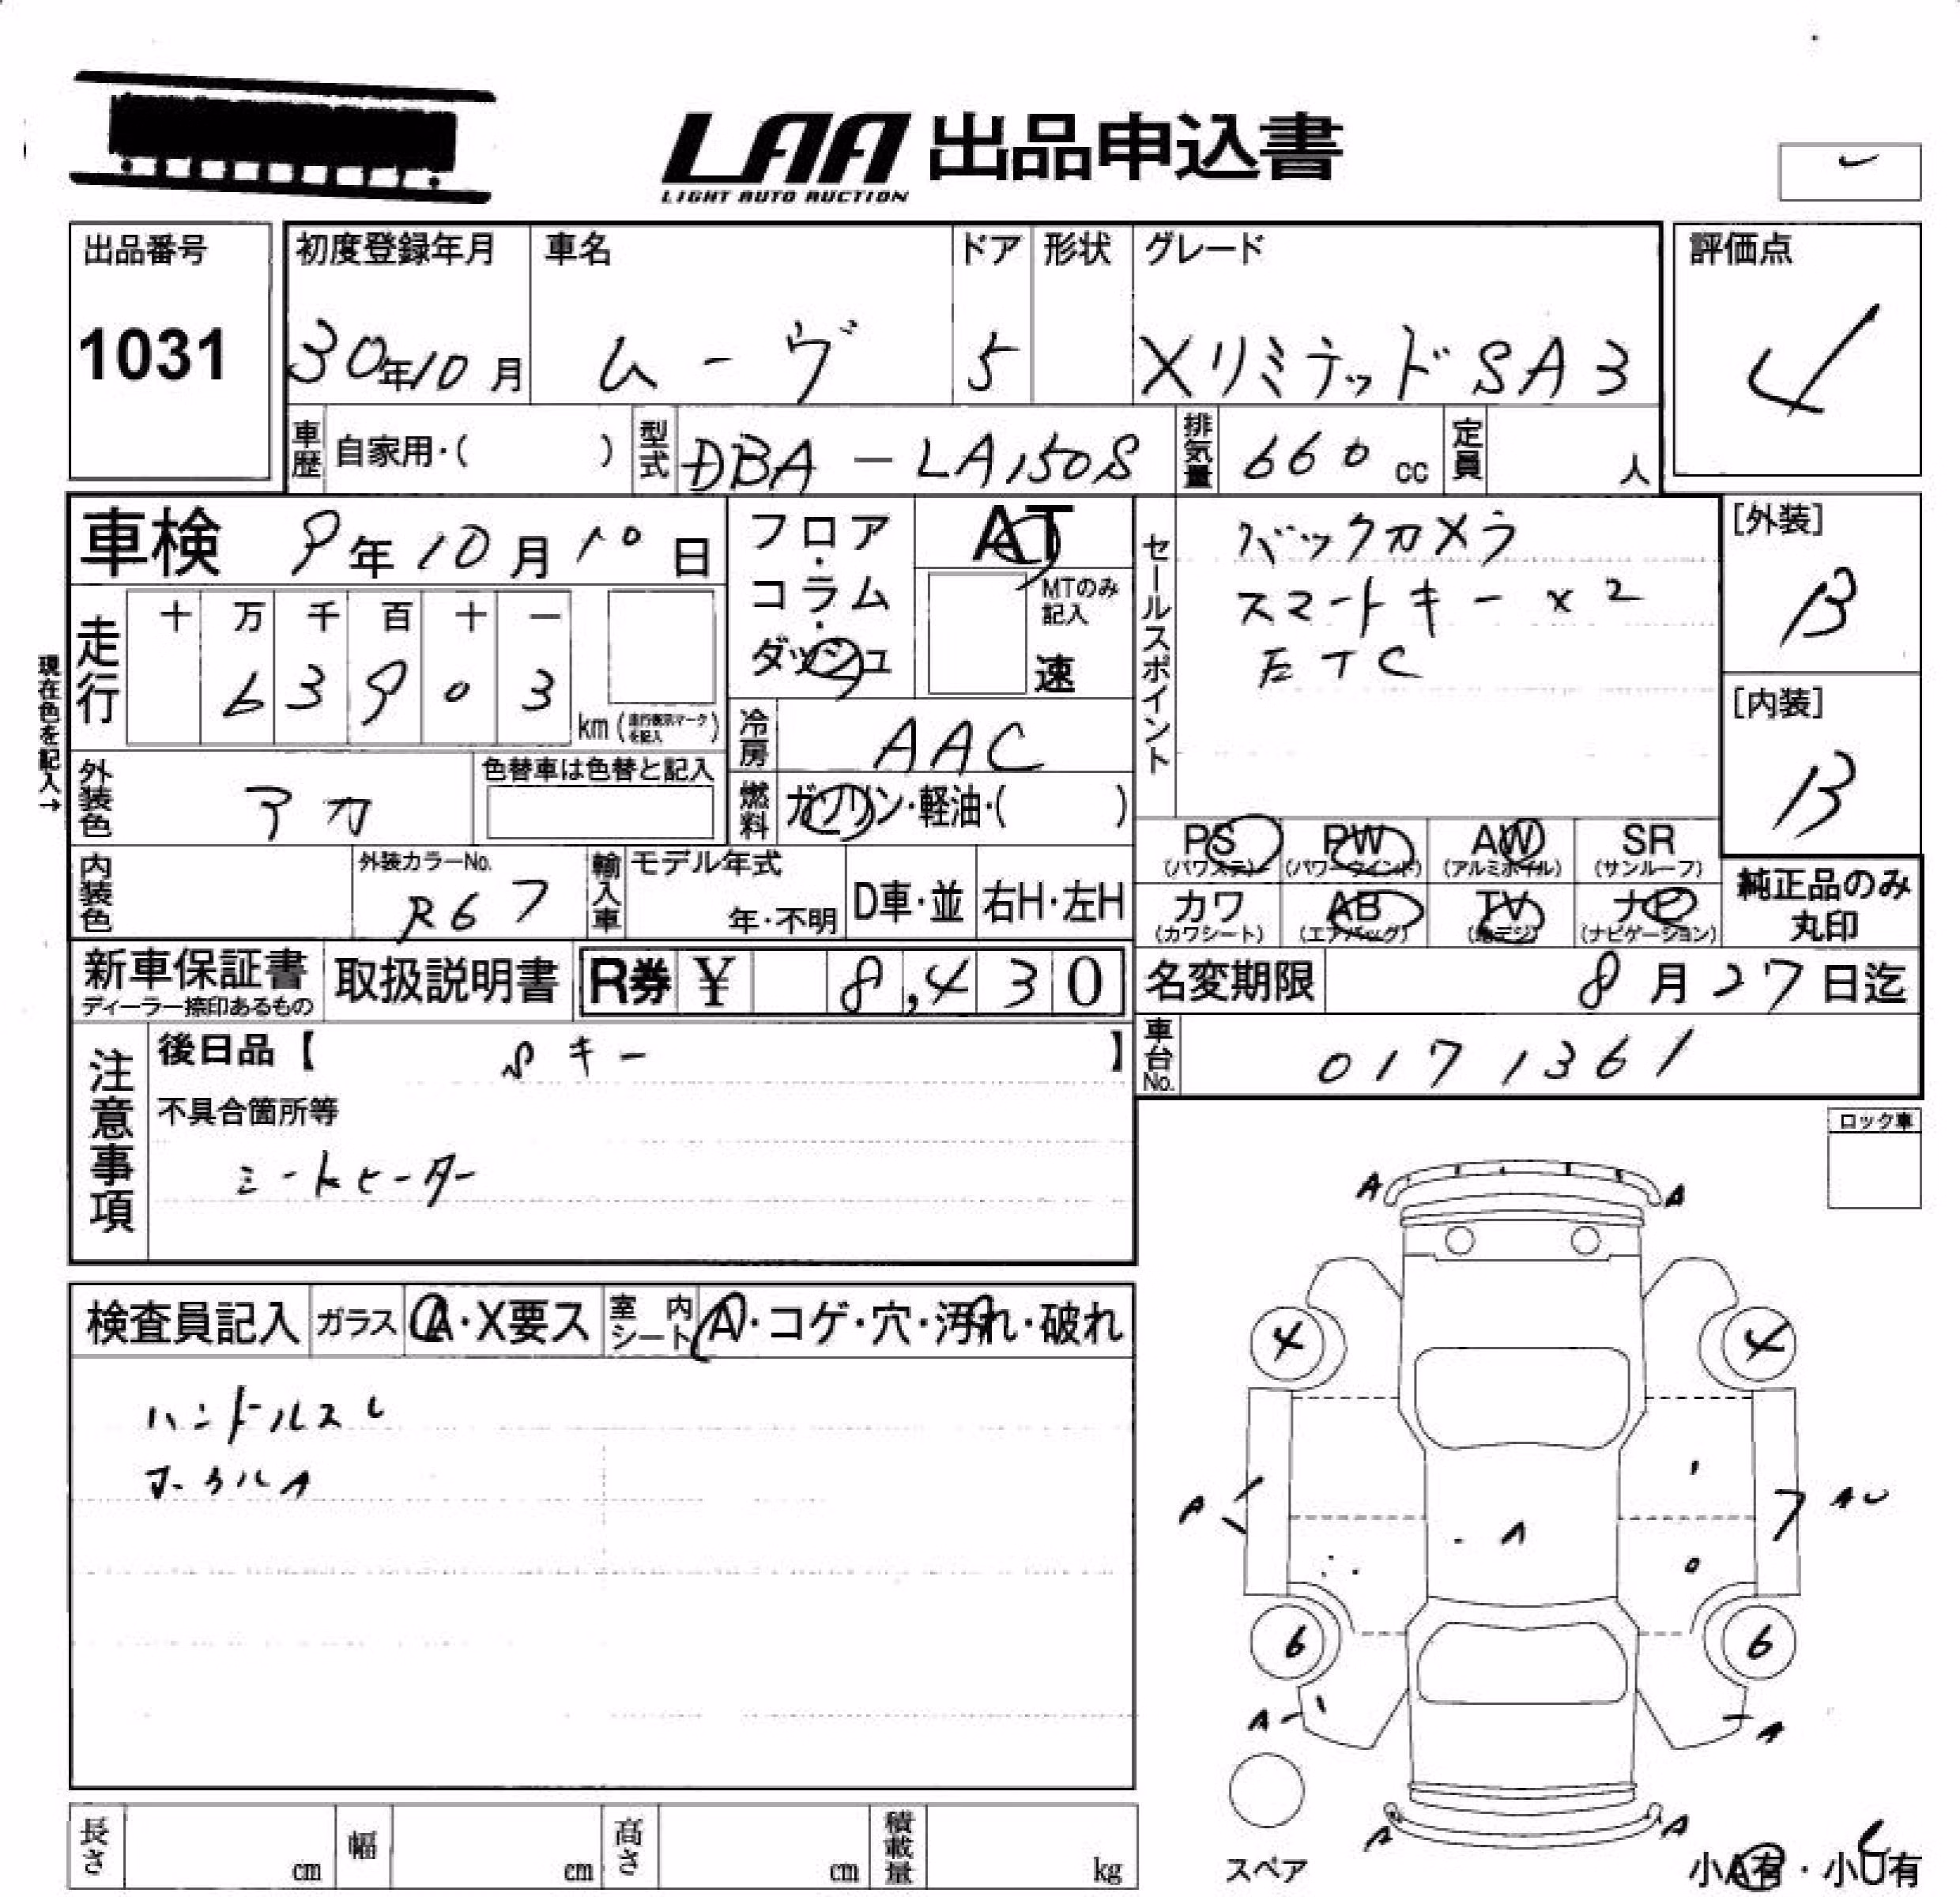 LAA 出品申込書
LIGHT AUTO AUCTION
出品番号
1031
初度登録年月
30年10月
車名
ムーヴ
ドア
5
形状
グレード
XリミテッドSA3
評価点
4
車歴
自家用・( )
型式
DBA-LA150S
排気量
660 cc
定員
人
車検 9年10月10日
フロア・コラム・ダッシュ
AT
MTのみ記入
速
セールスポイント
バックカメラ
スマートキー×2
ETC
[外装]
B
[内装]
B
現在色を記入→
走行
十 万 千 百 十 一
6 3 9 0 3
km (走行表示マークを記入)
冷房
AAC
外装色
アカ
色替車は色替と記入
燃料
ガソリン・軽油・( )
PS (パワステ)
PW (パワーウインド)
AW (アルミホイル)
SR (サンルーフ)
カワ (カワシート)
AB (エアバッグ)
TV (地デジ)
ナビ (ナビゲーション)
純正品のみ
丸印
内装色
外装カラーNo.
R67
輸入車
モデル年式
年・不明
D車・並
右H・左H
新車保証書
ディーラー捺印あるもの
取扱説明書
R券 ¥ 8,430
名変期限
8月27日迄
車台No.
0171361
注意事項
後日品【 Sキー 】
不具合箇所等
シートヒーター
ロック車
検査員記入
ガラス
A・X要ス
室内シート
A・コゲ・穴・汚れ・破れ
ハンドルスレ
A A
4 4
A AU
A
6 6
A A
A A
スペア
小A有・小U有
長さ cm
幅 cm
高さ cm
積載量 kg